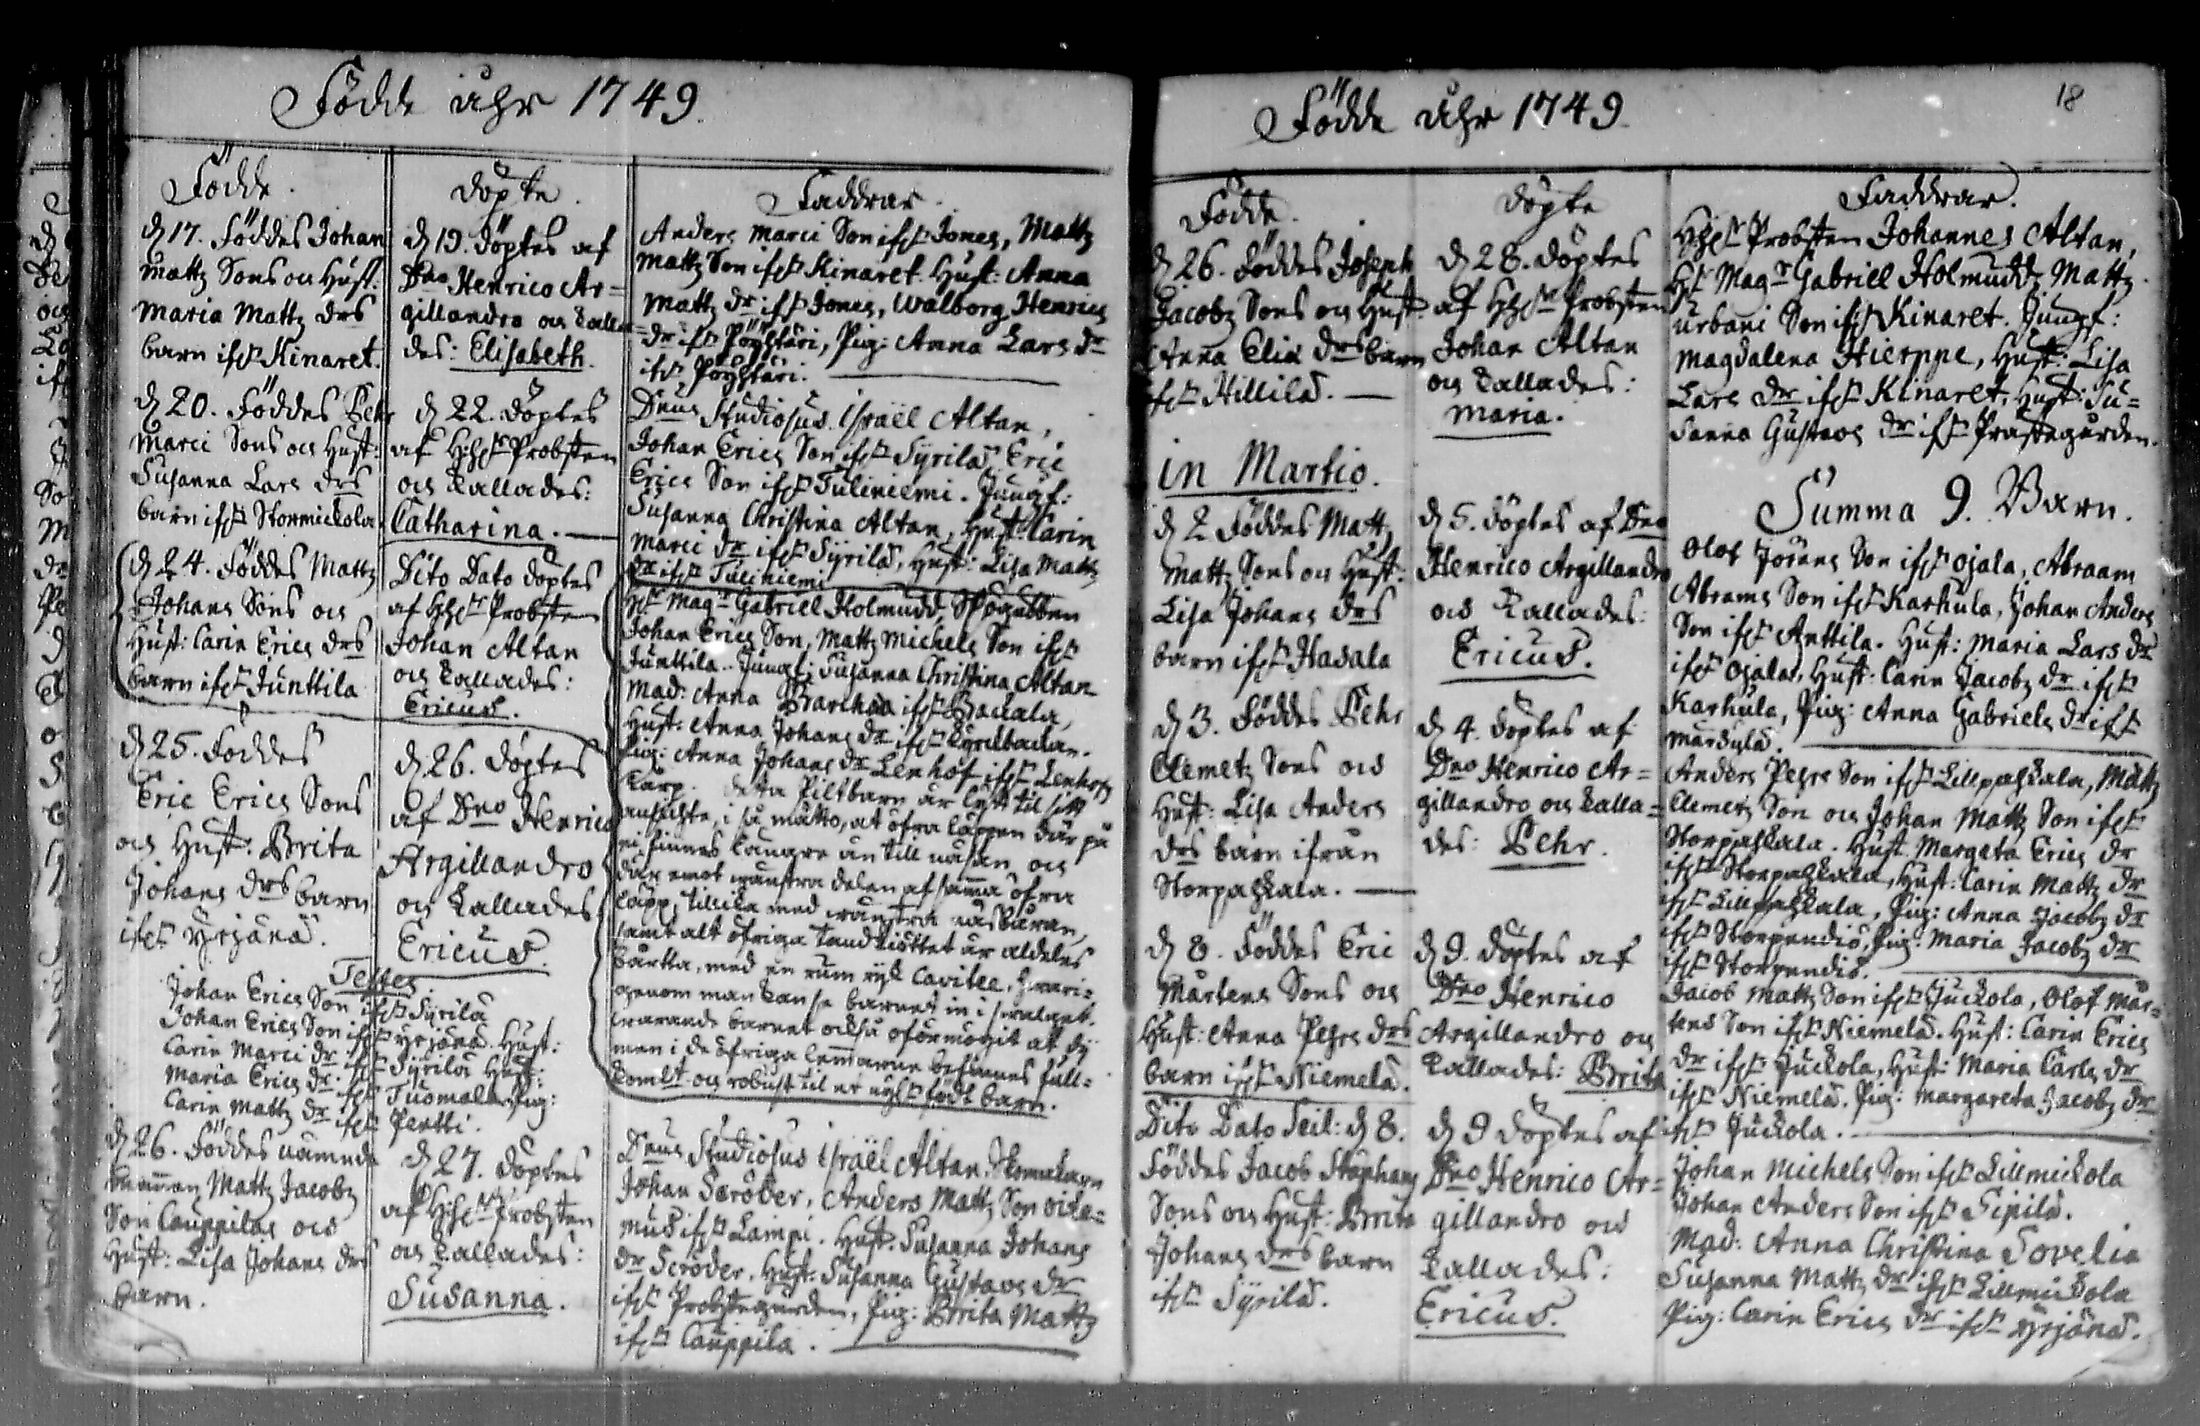 Födde åhr 1749.
Födde.
d 17. Föddes Johan
Mattz Sons och Hust:
Maria Mattz drs
barn ifr Kinaret.
d 20. Föddes Pehr
Marci Sons och Hust:
Susanna Lars drs
barn ifr Stormickola
d 24. Föddes Mattz
Johans Sons och
Hust: Carin Erics drs
barn ifr Junttila
d 25. Föddes
Eric Erics Sons
och Hust: Brita
Johans drs barn
ifr Yrjänä.
Testes
Johan Erics Son ifr Syrilä
Johan Erics Son ifr Yrjänä. Hust:
Carin Marci dr ifr Syrilä Hust:
Maria Erics dr ifr Tuomala, Pig:
Carin Mattz dr ifr Pertti.
d 26. Föddes nämnde
Mattz Jacobz
Son Cauppilas och
Hust: Lisa Johans drs
barn.
döpte.
d 19. döptes af
Dno Henrico Ar=
gillandro och kalla=
des: Elisabeth.
d 22. döptes
af HhSr Probsten
och kallades:
Catharina.
Dito Dato döptes
af HhSr Probsten
Johan Altan
och kallades:
Ericus.
d 26. döptes
af Dno Henrico
Argillandro
och kallades
Ericus.
d 27. döptes
af HhSr Probsten
och kallades:
Susanna.
Faddrar.
Anders Marci Son ifr Jones, Mattz
Mattz Son ifr Kinaret. Hust: Anna
Mattz dr ifr Jones, Walborg Henrics
dr ifr Pöyhtäri, Pig: Anna Lars dr
ifr Pöyhtäri.
Dnus Studiosus Israël Altan,
Johan Erics Son ifr Syrilä Eric
Erics Son ifr Tuliniemi. Jungf:
Susanna Christina Altan, Hust: Carin
Marci dr ifr Syrilä, Hust: Lisa Mattz
dr ifr Tuliniemi
Hr Magr Gabriel Holmudd,
Johan Erics Son, Mattz Michels Son ifr
Junttila. Jungf: Susanna Christina Altan
Mad: Anna ifr Baccala,
Hust: Anna Johans dr ifr
Pig: Anna Johans dr Lenhof ifr
torp. detta Piltbarn är lytt til sitt
ansichte, i så måtto, at öfra läppen där på
ei finnes längre än till näsan och
där emot wänstra delen af samma öfra
läpp, tillika med wänstra näsburan,
samt alt öfriga tandkiöttet är aldeles
borta, med en rum cavitee, hwari=
genom man kan se barnet in i swalget.
warande barnet också oförmögit at dj
men i de öfriga lemmarne befinnes full=
komlt och robust til et nyß födt barn.
Dnus Studiosus Israël Altan.
Johan Scröder, Anders Mattz Son
ifr Lampi. Hust: Susanna Johans
dr Scröder, Hust: Susanna Gustavs dr
ifr Probstegården, Pig: Brita Mattz
ifr Cauppila.
Födde åhr 1749.
18
Födde.
d 26. Föddes Joseph
Jacobz Sons och Hust:
Anna Eliæ drs barn
ifr Hillilä.
in Martio.
d 2 Föddes Matt,
Mattz Sons och Hust:
Lisa Johans drs
barn ifr Hasala
d 3. Föddes Pehr
Clemetz Sons och
Hust: Lisa Anders
drs barn ifrån
Storpaßkala.
d 8. Föddes Eric
Mårtens Sons och
Hust: Anna Pehrs drs
barn ifr Niemelä.
Dito Dato Scil: d 8.
Föddes Jacob Staphans
Sons och Hust: Brita
Johans drs barn
ifr Syrilä.
döpte
d 28. döptes
af HhSr Probsten
Johan Altan
och kallades:
Maria.
d 5. döptes af Dno
Henrico Argillandro
och kallades:
Ericus.
d 4. döptes af
Dno Henrico Ar=
gillandro och kalla=
des: Pehr.
d 9. döptes af
Dno Henrico
Argillandro och
kallades: Brita
d 9 döptes af
Dno Henrico Ar=
gillandro och
kallades:
Ericus.
Faddrar.
HhSr Probsten Johannes Altan,
Hr Magr Gabriel Holmudd, Mattz
Urbani Son ifr Kinaret. Jungf:
Magdalena Hierppe, Hust: Lisa
Lars dr ifr Kinaret, Hust: Su=
sanna Gustavs dr ifr Prästegården.
Summa 9. Barn.
Olof Jörans Son ifr Ojala, Abraam
Abrams Son ifr Karhula, Johan Anders
Son ifr Anttila. Hust: Maria Lars dr
ifr Ojala, Hust: Carin Jacobz dr ifr
Karhula, Pig: Anna Gabriels dr ifr
Märsylä.
Anders Pehrs Son ifr Lillpaßkala, Mattz
Clemetz Son och Johan Mattz Son ifr
Storpaßkala. Hust: Margeta Erics dr
ifr Storpaßkala, Hust: Carin Mattz dr
ifr Lillpaßkala, Pig: Anna Jacobz dr
ifr Storpendis, Pig: Maria Jacobz dr
ifr Storpendis.
Jacob Mattz Son ifr Juckola, Olof Mår=
tens Son ifr Niemelä. Hust: Carin Erics
dr ifr Juckola, Hust: Maria Carls dr
ifr Niemelä. Pig: Margareta Jacobz dr
ifr Juckola.
Johan Michels Son ifr Lillmickola
Johan Anders Son ifr Sipilä.
Mad: Anna Christina Sovelia
Susanna Mattz dr ifr Lillmickola
Pig: Carin Erics dr ifr Yrjänä.